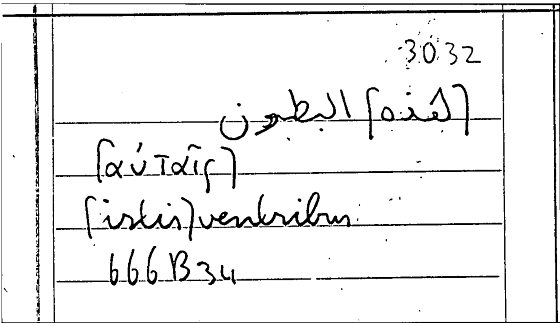 3032
[لهذه] البطون
[αὐταῖς]
[istis] ventribus
666B34